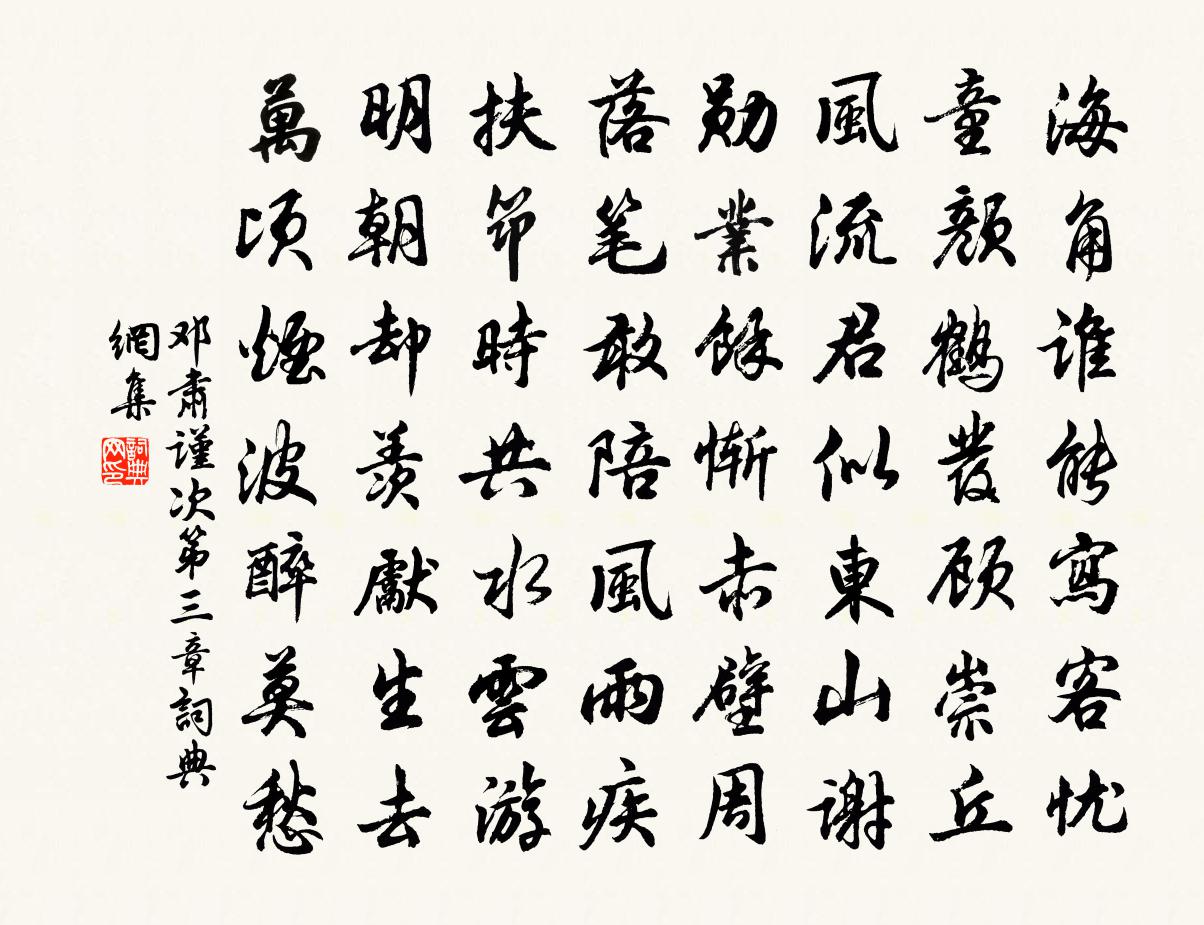 海角谁能寫客忧
童顔鶴發顾崇丘
風流君似東山謝
勋業餘惭赤壁周
落笔敢陪風雨疾
扶筇時共水雲游
明朝却羨獻生去
萬頃煙波醉莫愁
邓肅谨次第三章詞典
網集
詞典
网印